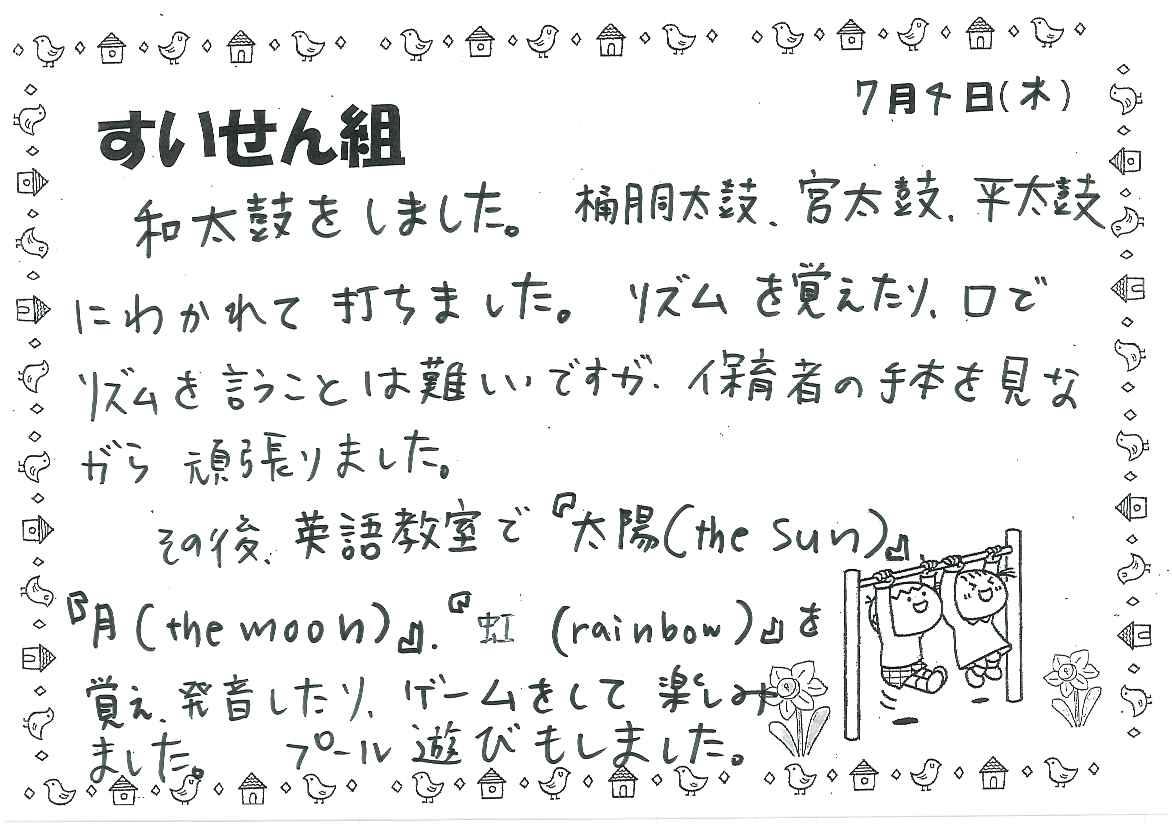 7月4日(木)
すいせん組
和太鼓をしました。 桶胴太鼓、宮太鼓、平太鼓
にわかれて打ちました。 リズムを覚えたり、口で
リズムを言うことは難しいですが、保育者の手本を見な
がら頑張りました。
その後、英語教室で『太陽(the sun)』、
『月(the moon)』、『虹 (rainbow)』を
覚え、発音したり、ゲームをして楽しみ
ました。 プール遊びもしました。